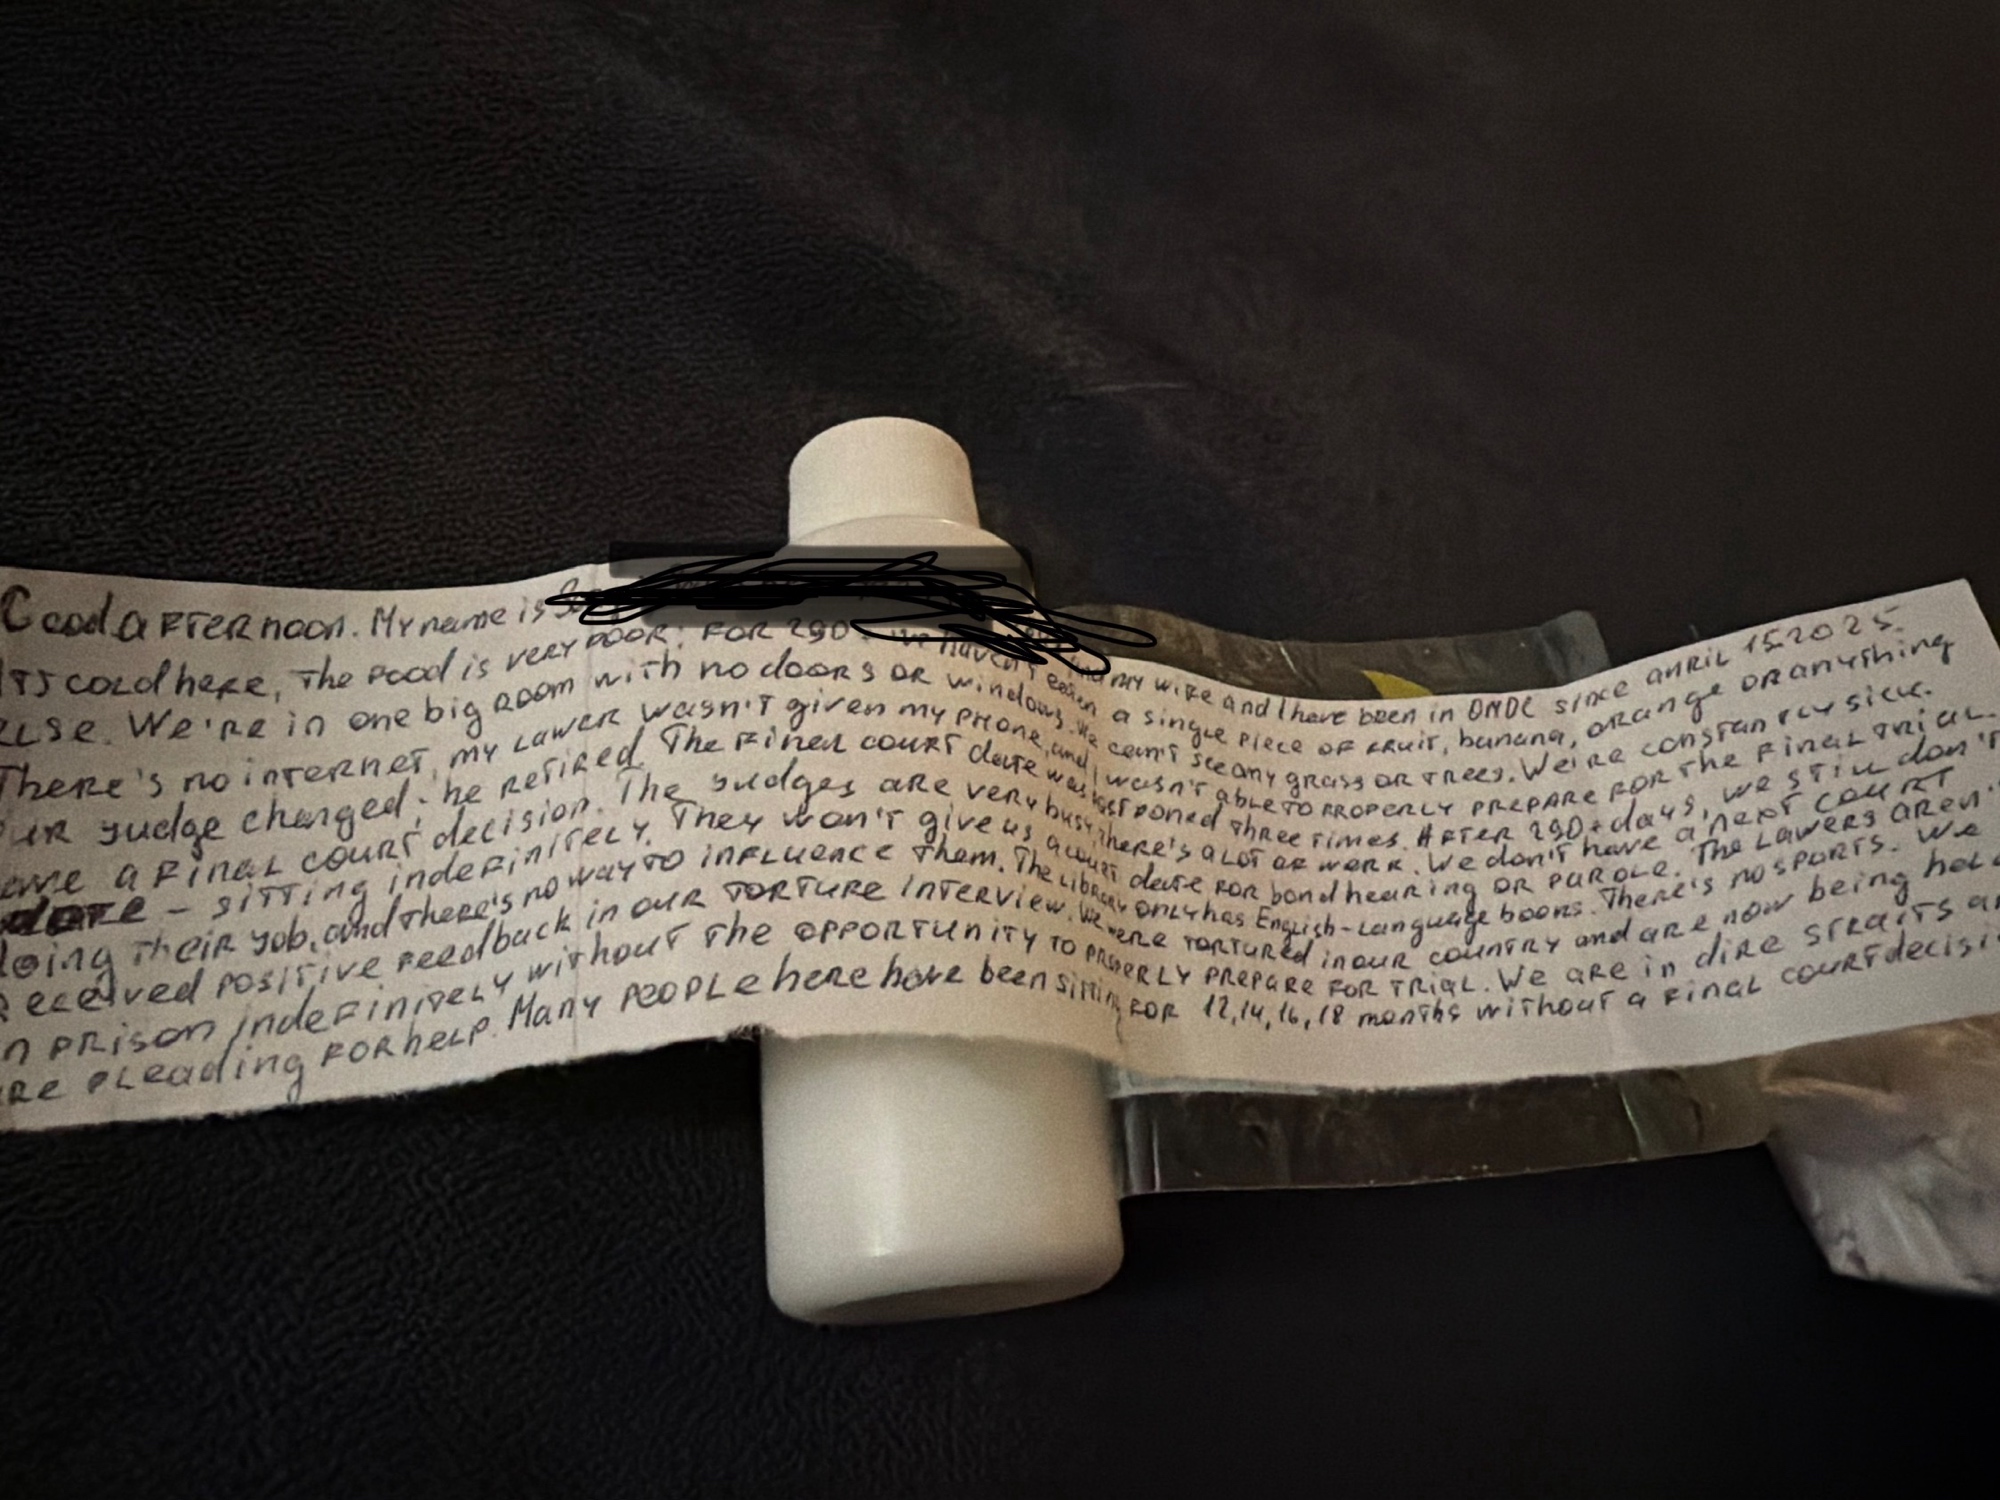 Good afternoon. My name is and my wife and I have been in OMDC since anril 15.2025.
ITs cold here, The food is very poor: FOR 290+ we haven't eaten a single piece of fruit, banana, orange or anything
else. We're in one big room with no doors or windows. We can't see any grass or trees. We're constantly sick.
There's no internet, my lawer wasn't given my phone, and I wasn't able to properly prepare for the final trial.
ur judge changed; he retired. The final court date was postponed three times. After 290+days, we still don't
ave a final court decision. The judges are very busy, there's a lot of work. We don't have a next court
date - sitting indefinitely. They won't give us a court date for bond hearing or parole. The lawers aren't
doing their job, and there's no way to influence them. The library only has English-language books. There's no sports. We
received positive feedback in our torture interview. We were tortured in our country and are now being held
n prison indefinitely without the opportunity to properly prepare for trial. We are in dire straits an
re pleading for help. Many people here have been sitting for 12,14,16,18 months without a final court decisi